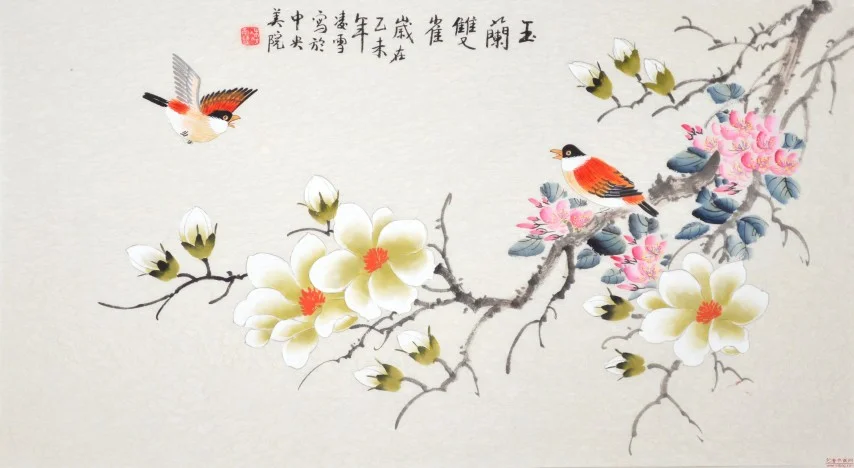 玉蘭雙雀
歲在
乙未
年
凌雪
寫於
中央
美院